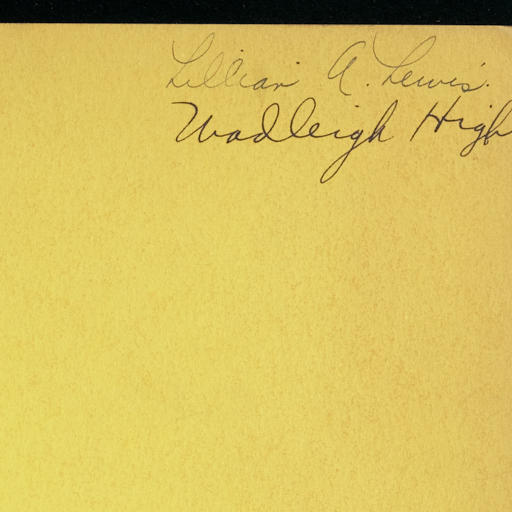 Lillian A. Lewis.
Wadleigh High